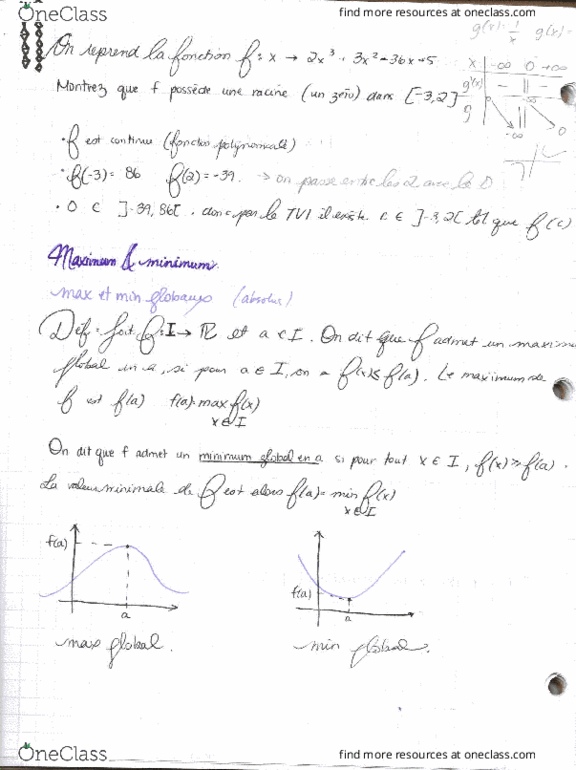 OneClass
find more resources at oneclass.com
g(x)= 1/x g(x)=
On reprend la fonction f: x → 2x³ + 3x² - 36x + 5
x | -∞ 0 +∞
Montrez que f possède une racine (un zéro) dans [-3,2]
g'(x)
g
• f est continue (fonction polynomiale)
• f(-3)= 86 f(2)= -39 → on passe entre les 2 avec le 0
• 0 ∈ ]-39, 86[ . donc par le TVI il existe c ∈ ]-3,2[ tel que f(c)
Maximum & minimum
max et min globaux (absolus)
Def: soit f: I → ℝ et a ∈ I. On dit que f admet un maximu
global en a, si pour a ∈ I, on a f(x) ≤ f(a). Le maximum de
f est f(a) f(a)= max f(x)
x ∈ I
On dit que f admet un minimum global en a si pour tout x ∈ I, f(x) ≥ f(a).
La valeur minimale de f est alors f(a)= min f(x)
x ∈ I
f(a)
a
max global.
f(a)
a
min global.
OneClass
find more resources at oneclass.com